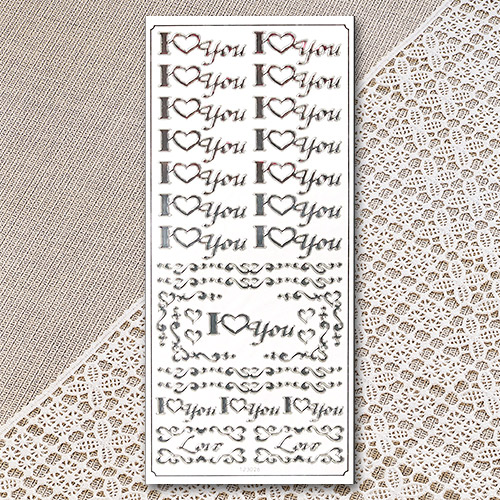 I ♡ You I ♡ You
I ♡ You I ♡ You
I ♡ You I ♡ You
I ♡ You I ♡ You
I ♡ You I ♡ You
I ♡ You I ♡ You
I ♡ You I ♡ You
I ♡ You
I ♡ You I ♡ You I ♡ You
Love Love